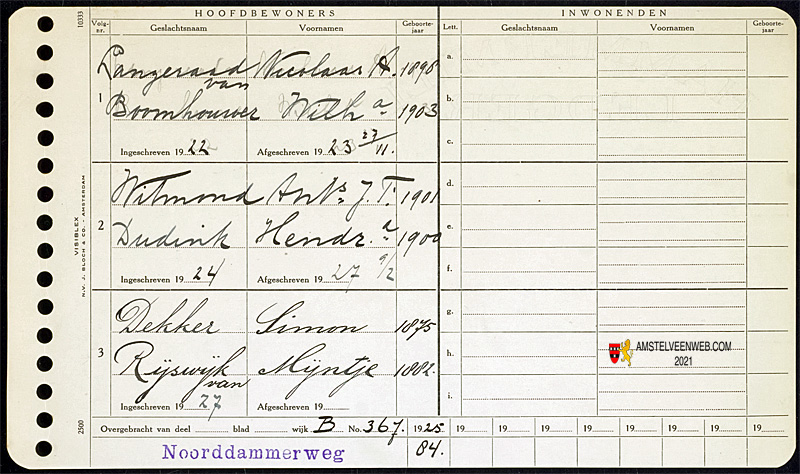 HOOFDBEWONERS INWONENDEN
10333
Volg-nr. Geslachtsnaam Voornamen Geboorte-jaar Lett. Geslachtsnaam Voornamen Geboorte-jaar
Langeraad Nicolaas A. 1898 a.
van
1 Boomhouwer Wilh a 1903 b.
Ingeschreven 19 22 Afgeschreven 19 23 27/11. c.
Witmond Ants. J. T. 1901 d.
2 Dudink Hendr. a 1900 e.
Ingeschreven 19 24 Afgeschreven 19 27 9/2 f.
Dekker Simon 1875 g.
3 Rijswijk Mijntje 1882. h.
van
Ingeschreven 19 27 Afgeschreven 19 i.
AMSTELVEENWEB.COM
2021
VISIBLEX
N.V. J. BLOCH & CO. - AMSTERDAM
2500
Overgebracht van deel blad wijk B No. 367. 1925 19 19 19 19 19 19 19 19
Noorddammerweg 84.